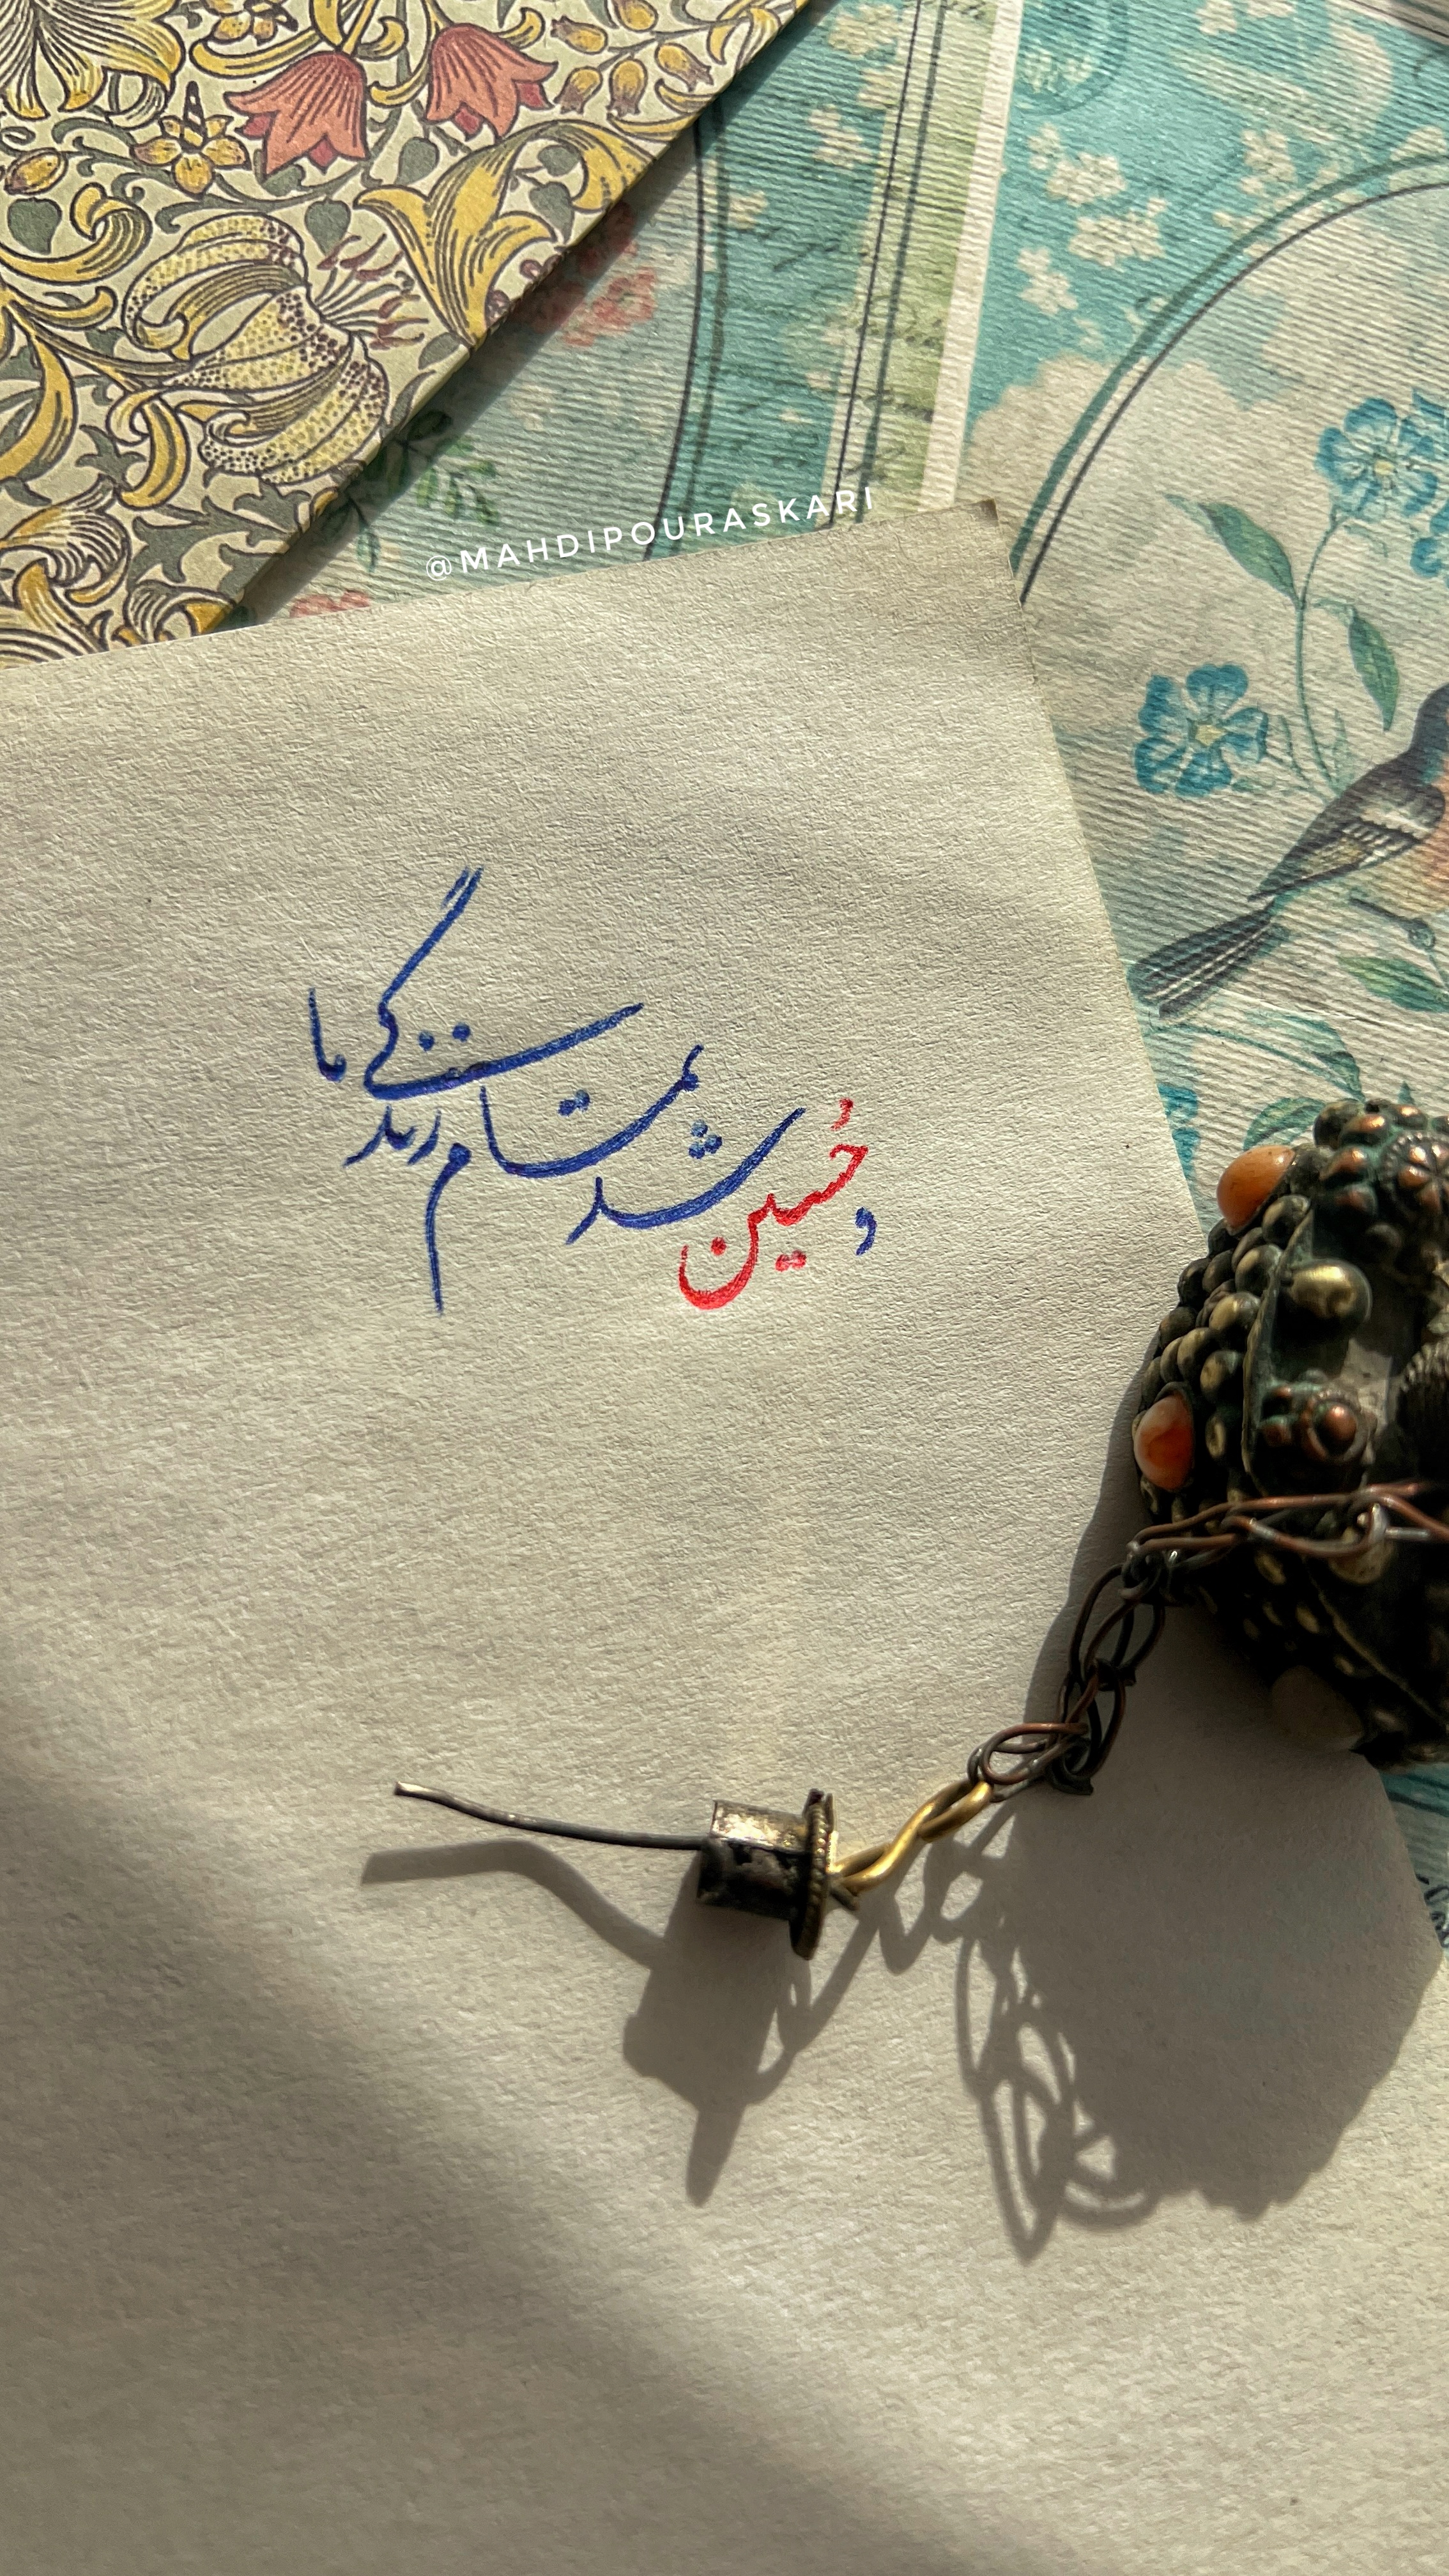 @MAHDIPOURASKARI
و حُسین شد تمام زندگی ما